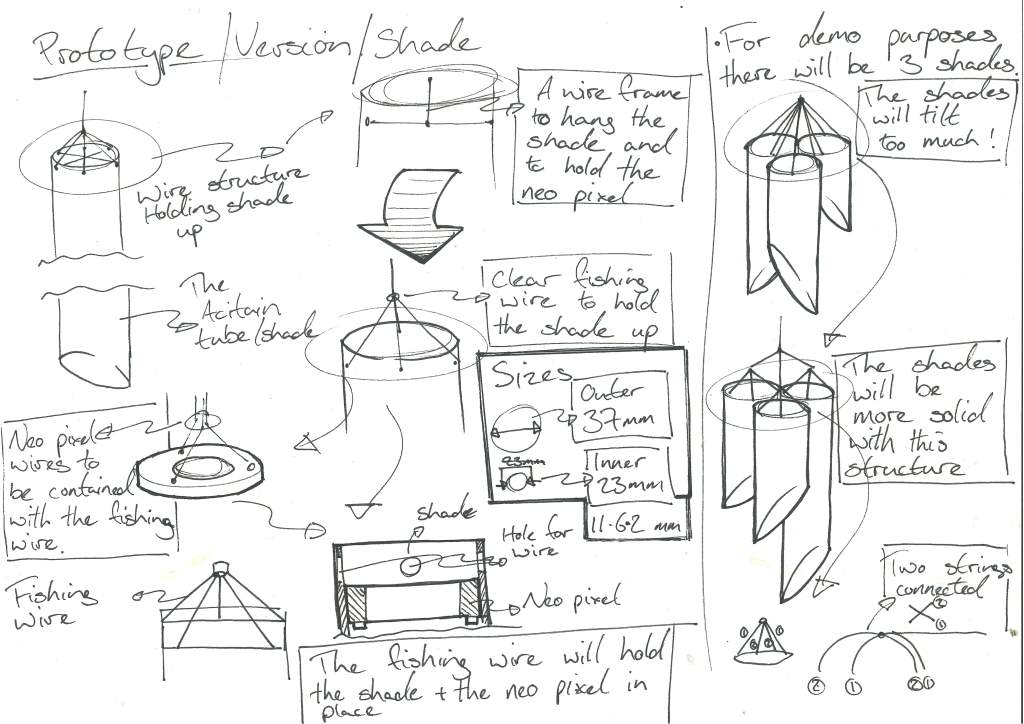 Prototype/Version/Shade
Wire structure
Holding shade
up
A wire frame
to hang the
shade, and
to hold the
neo pixel
The
Acitain
tube/shade
Clear fishing
wire to hold
the shade up
Sizes
Outer
37mm
23mm
Inner
23mm
11.6.2 mm
Neo pixel
wires to
be contained
with the fishing
wire.
shade
Hole for
wire
Neo pixel
Fishing
wire
The fishing wire will hold
the shade + the neo pixel in
place
•For demo purposes
there will be 3 shades.
The shades
will tilt
too much!
The shades
will be
more solid
with this
structure
Two strings
connected
2
1
1 2
2 1
2 1 2 1